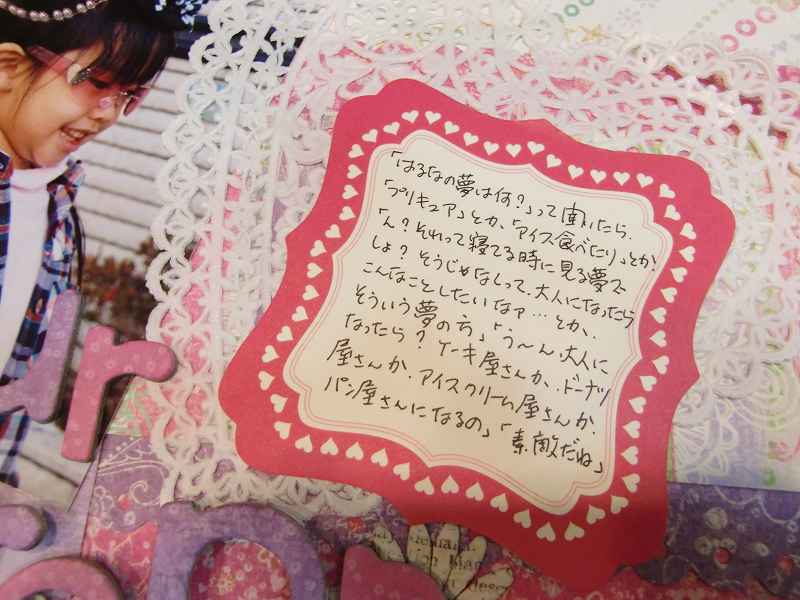 「はるなの夢は何？」って聞いたら、
「プリキュア」とか、「アイス食べたり」とか。
「ん？それって寝てる時に見る夢で
しょ？そうじゃなくって、大人になったら
こんなことしたいなァ…とか、
そういう夢の方」「う〜ん、大人に
なったら？ケーキ屋さんか、ドーナツ
屋さんか、アイスクリーム屋さんか、
パン屋さんになるの」「素敵だね」
ur